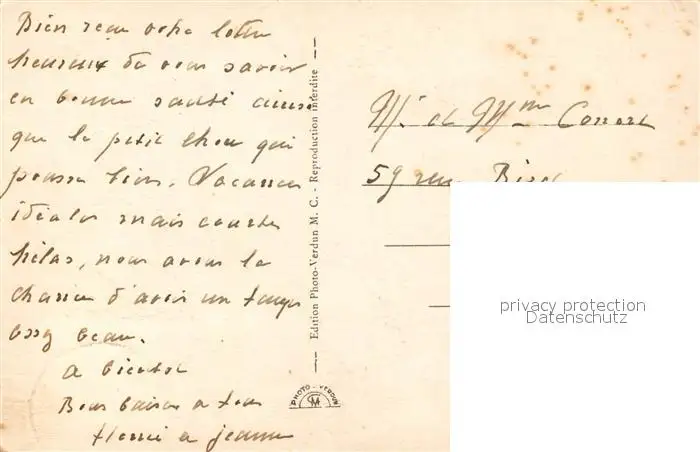 Bien reçu votre lettre
heureux de vous savoir
en bonne santé ainsi
que le petit chou qui
pousse bien. Vacances
idéales mais courtes
hélas, nous avons la
chance d'avoir un temps
assez beau.
a bientot
Bons baisers a tous
a jeanne
Edition Photo-Verdun M. C. - Reproduction interdite
PHOTO - VERDUN
Mr et Mme
59 rue
privacy protection
Datenschutz